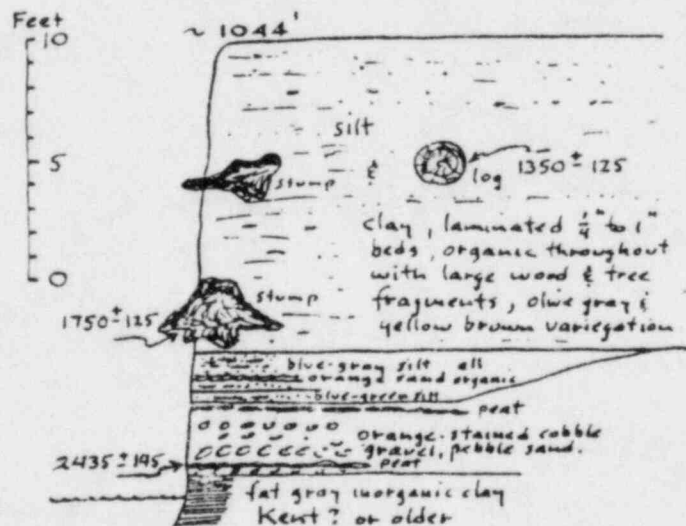 Feet
~ 1044'
10
silt
5
stump
&
log
1350 ± 125
clay, laminated ¼" to 1"
beds, organic throughout
with large wood & tree
fragments, olive gray &
yellow brown variegation
0
stump
1750 ± 125
blue-gray silt all
orange sand organic
blue-green silt
peat
orange-stained cobble
gravel, pebble sand.
2435 ± 195
peat
fat gray inorganic clay
Kent? or older